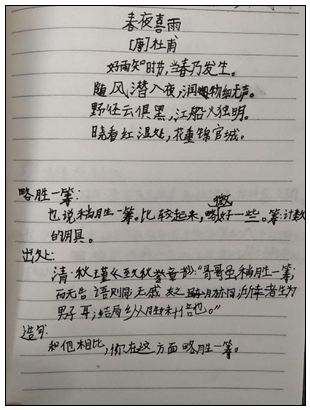 春夜喜雨
[唐]杜甫
好雨知时节,当春乃发生。
随风潜入夜,润物细无声。
野径云俱黑,江船火独明。
晓看红湿处,花重锦官城。
略胜一筹:
也说稍胜一筹。比较起来,略微好一些。筹:计数
的用具。
出处:
清·秋瑾《致秋誉章书》:“哥哥虽稍胜一筹,
而无告语则同
男子耳;结局
造句:
和他相比,你在这方面略胜一筹。